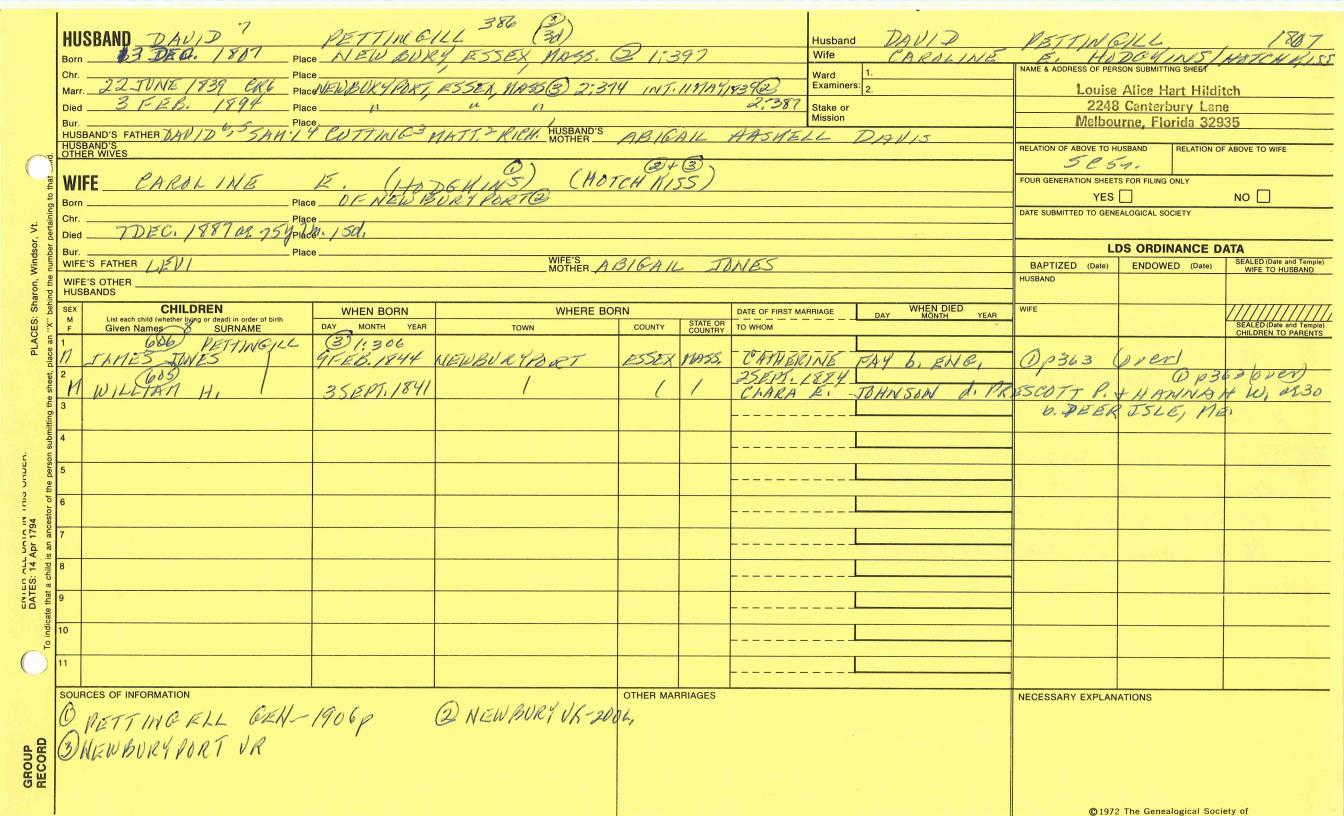 386 ③ 3d
HUSBAND DAVID 7 PETTINGILL
Born 13 DEC. 1807 Place NEWBURY, ESSEX, MASS. ② 1:397
Chr. Place
Marr. 22 JUNE 1839 CR6 Place NEWBURYPORT, ESSEX, MASS ③ 2:374 INT. 11 MAY 1839 ②
2:387
Died 3 FEB. 1894 Place " " "
Bur. Place
HUSBAND'S FATHER DAVID 6, 5 SAM'L 4 CUTTING 3 MATT. 2 RICH. 1 HUSBAND'S MOTHER ABIGAIL HASKELL DAVIS
HUSBAND'S OTHER WIVES
Husband DAVID PETTINGILL 1807
Wife CAROLINE E. HODGKINS/HOTCHKISS
Ward Examiners: 1.
2.
Stake or Mission
NAME & ADDRESS OF PERSON SUBMITTING SHEET
Louise Alice Hart Hilditch
2248 Canterbury Lane
Melbourne, Florida 32935
RELATION OF ABOVE TO HUSBAND RELATION OF ABOVE TO WIFE
5C5r.
FOUR GENERATION SHEETS FOR FILING ONLY
YES NO
DATE SUBMITTED TO GENEALOGICAL SOCIETY
① ② + ③
WIFE CAROLINE E. (HODGKINS) (HOTCHKISS)
Born Place OF NEWBURYPORT ②
Chr. Place
Died 7 DEC. 1887 ae 75y 7m. 15d. Place
Bur. Place
WIFE'S FATHER LEVI WIFE'S MOTHER ABIGAIL JONES
WIFE'S OTHER HUSBANDS
LDS ORDINANCE DATA
BAPTIZED (Date) ENDOWED (Date) SEALED (Date and Temple) WIFE TO HUSBAND
HUSBAND
WIFE
SEALED (Date and Temple) CHILDREN TO PARENTS
SEX M F CHILDREN WHEN BORN WHERE BORN DATE OF FIRST MARRIAGE WHEN DIED
List each child (whether living or dead) in order of birth
Given Names 8 SURNAME DAY MONTH YEAR TOWN COUNTY STATE OR COUNTRY TO WHOM DAY MONTH YEAR
1 606 PETTINGILL ③ 1:306
M JAMES JONES 9 FEB. 1844 NEWBURYPORT ESSEX MASS. CATHERINE FAY b. ENG. ① p363 (over)
2 605 2 SEPT. 1884 ① p363 (over)
M WILLIAM H. 3 SEPT. 1841 CLARA E. JOHNSON d. PRESCOTT P. + HANNAH W. ae30
3 b. DEER ISLE, ME.
4
5
6
7
8
9
10
11
SOURCES OF INFORMATION OTHER MARRIAGES NECESSARY EXPLANATIONS
① PETTINGELL GEN-1906p ② NEWBURY VR-
③ NEWBURYPORT VR
©1972 The Genealogical Society of
PLACES: Sharon, Windsor, Vt.
ENTER ALL DATA IN THIS ORDER:
DATES: 14 Apr 1794
To indicate that a child is an ancestor of the person submitting the sheet, place an "X" behind the number pertaining to that
GROUP RECORD